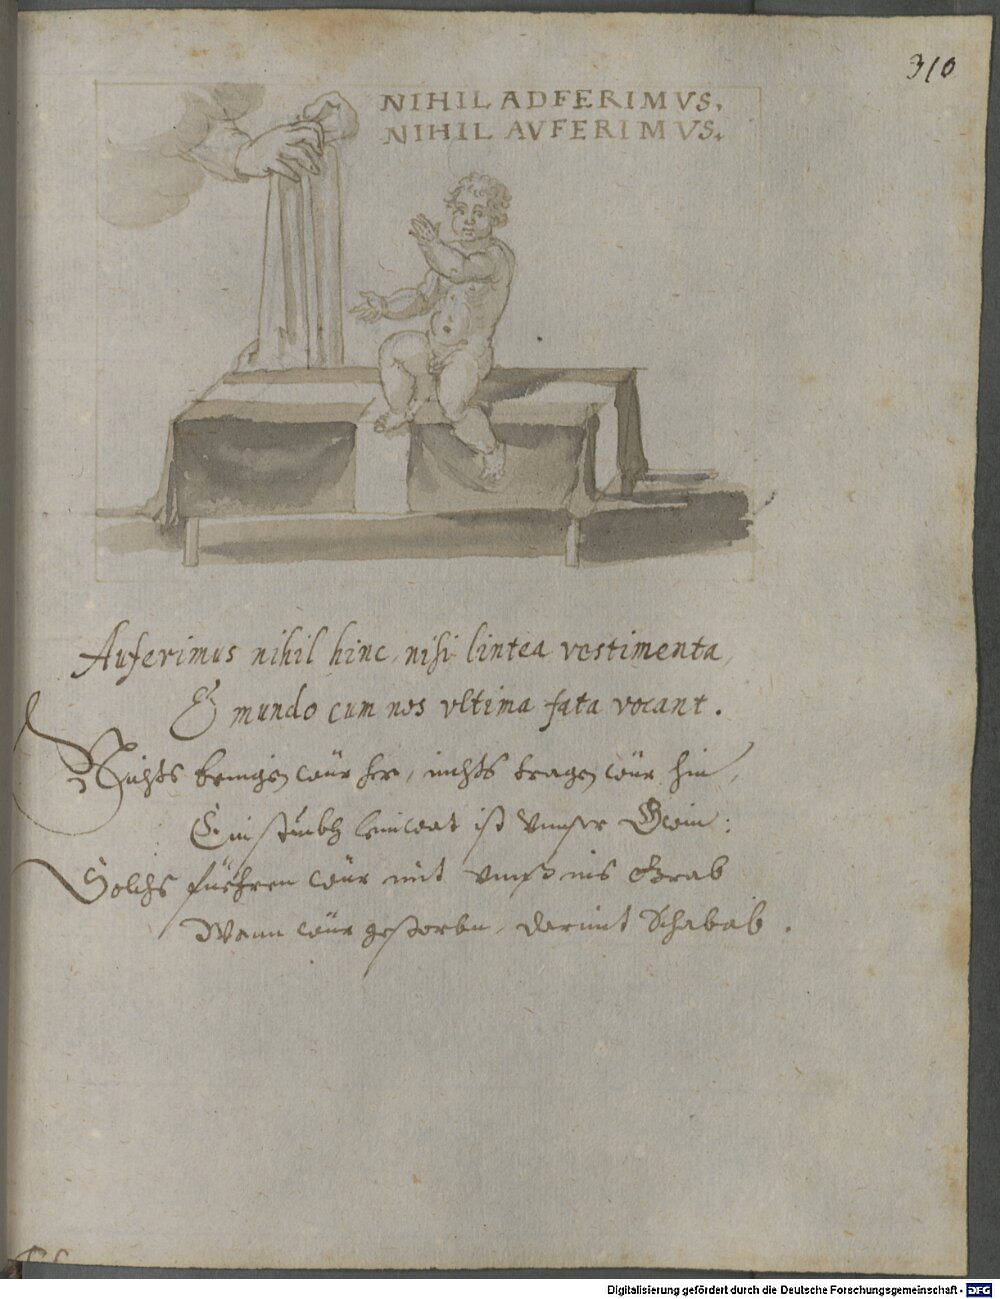 310
NIHIL ADFERIMVS.
NIHIL AVFERIMVS.
Auferimus nihil hinc, nisi lintea vestimenta,
E mundo cum nos vltima fata vocant.
Nichts bringen wür her, nichts tragen wür hin,
Ein leinwat ist vnnser Gwin:
Solchs füehren wür mit vnnß ins Grab
Wann wür gestorbn, darmit Schabab.
Digitalisierung gefördert durch die Deutsche Forschungsgemeinschaft - DFG